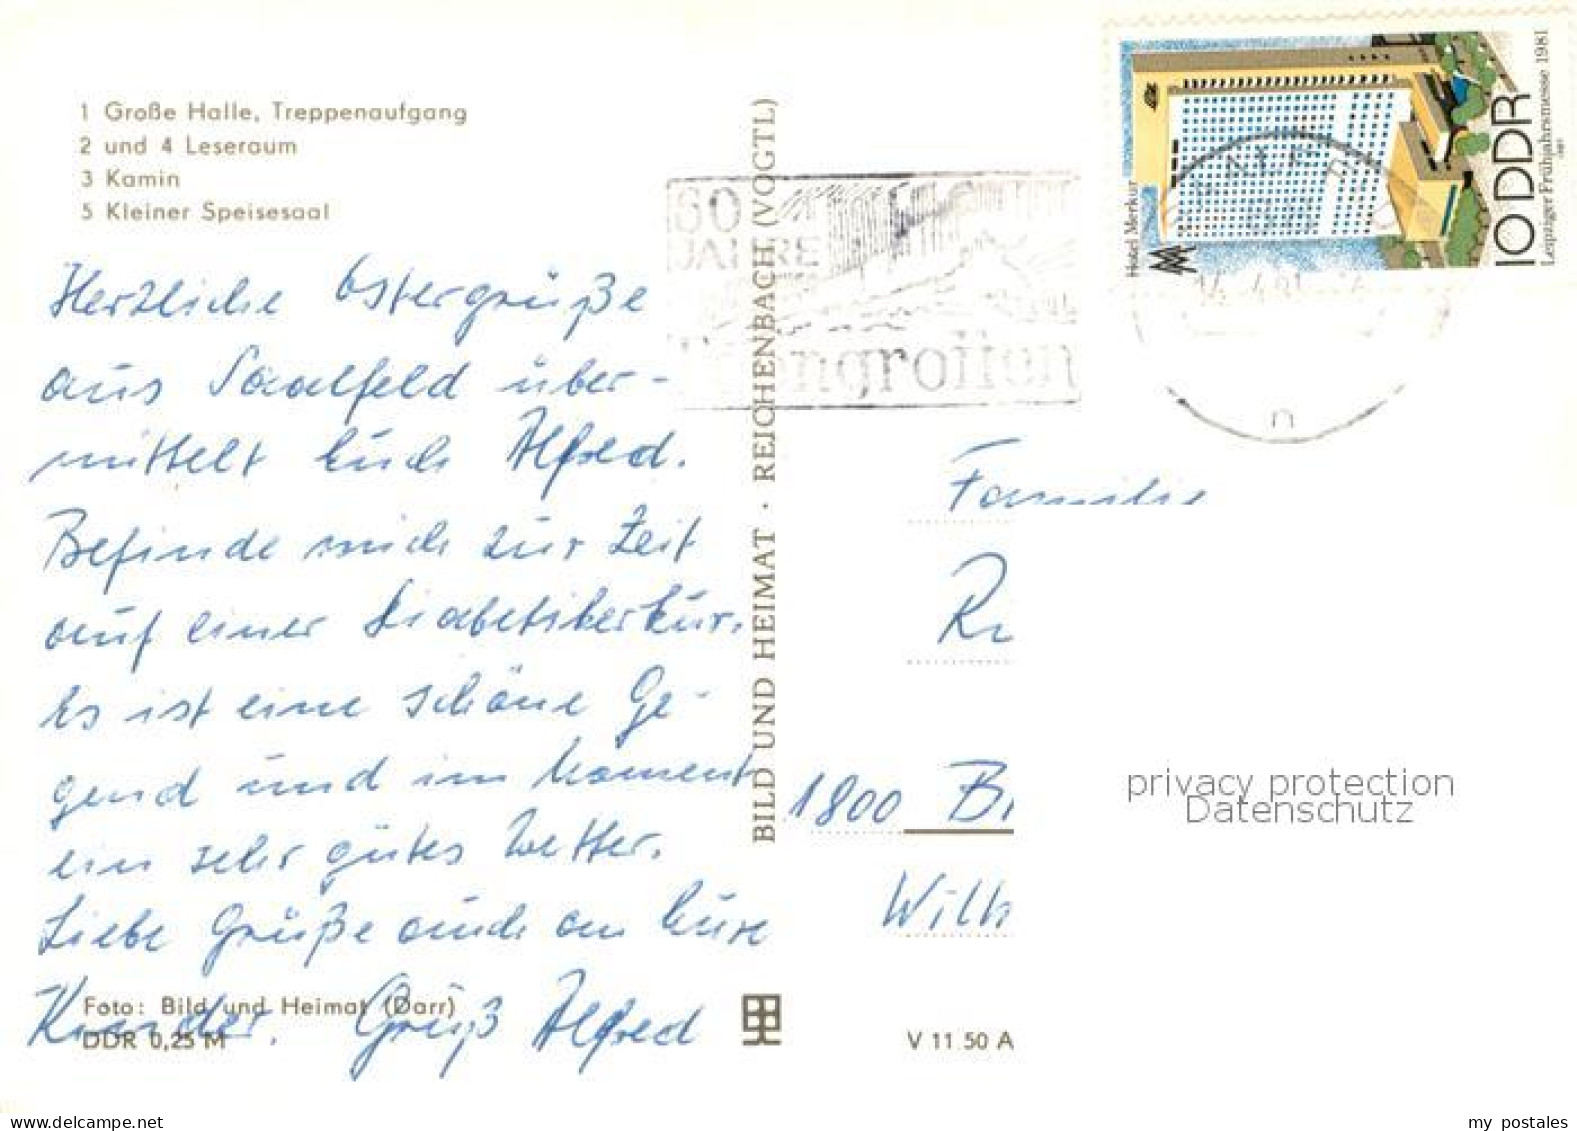 1 Große Halle, Treppenaufgang
2 und 4 Leseraum
3 Kamin
5 Kleiner Speisesaal
Herzliche Ostergrüße
aus Saalfeld über-
mittelt Euch Alfred.
Befinde mich zur Zeit
auf einer Diabetikerkur.
Es ist eine schöne Ge-
gend und im Moment
ein sehr gutes Wetter.
Liebe Grüße auch an Eure
Kinder. Gruß Alfred
Foto: Bild und Heimat (Darr)
DDR 0,25 M
BILD UND HEIMAT · REICHENBACH (VOGTL)
JAHRE
Hotel Merkur
MM
10 DDR
Leipziger Frühjahrsmesse 1981
14.4.81
n
Familie
1800
V 11 50 A
privacy protection
Datenschutz
www.delcampe.net
my_postales